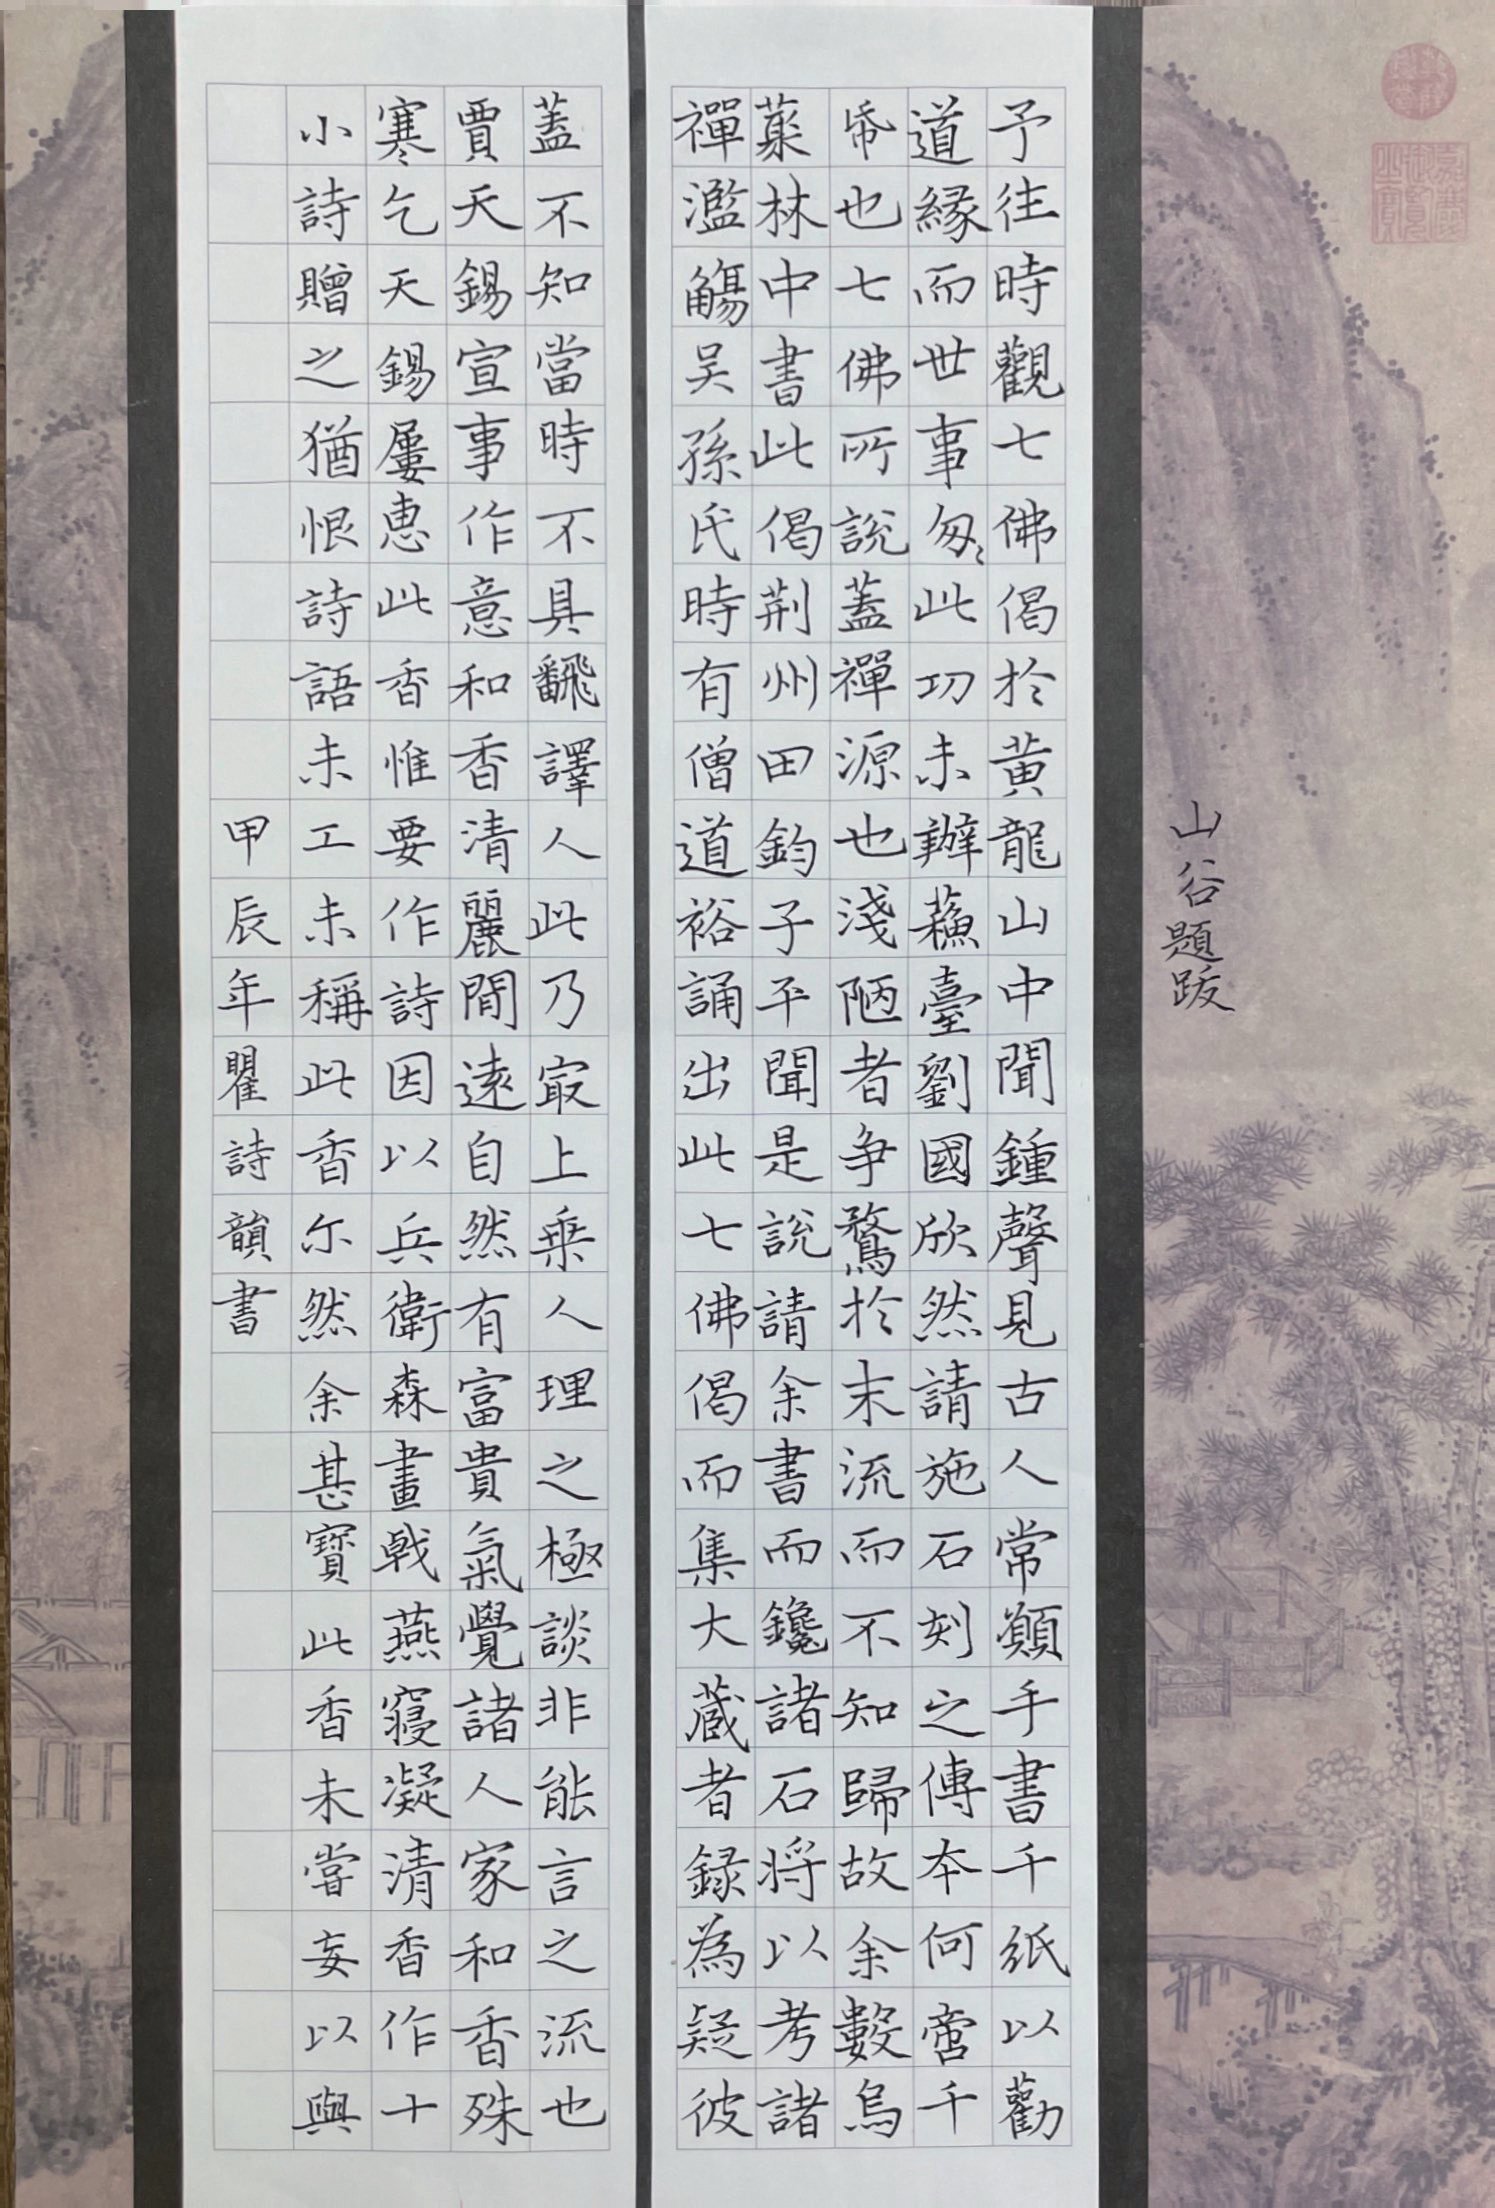 山谷題跋
予往時觀七佛偈於黃龍山中聞鍾聲見古人常願手書千紙以勸
道緣而世事匆〻此功未辦蘓臺劉國欣然請施石刻之傳本何啻千
帋也七佛所說蓋禪源也淺陋者爭騖於末流而不知歸故余數烏
蕖林中書此偈荆州田鈞子平聞是說請余書而鑱諸石將以考諸
禪濫觴吴孫氏時有僧道裕誦出此七佛偈而集大藏者録為疑彼
蓋不知當時不具飜譯人此乃㝡上乗人理之極談非能言之流也
賈天錫宣事作意和香清麗閒遠自然有富貴氣覺諸人家和香殊
寒乞天錫屢恵此香惟要作詩因以兵衛森畫戟燕寢凝清香作十
小詩贈之猶恨詩語未工未稱此香尔然余甚寶此香未嘗妄以與
甲辰年瞿詩韻書